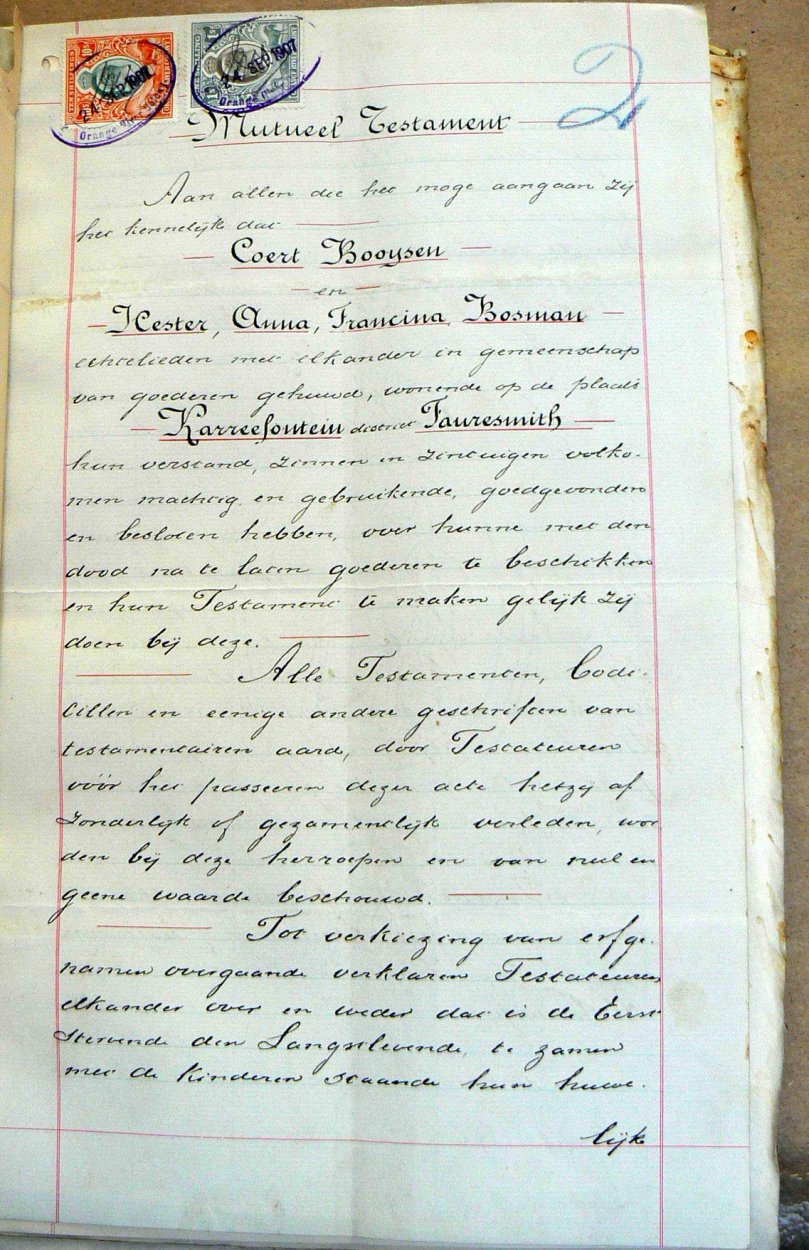 24 SEP 1907
Orange River
24 SEP 1907
Orange River
2
Mutueel Testament
Aan allen die het moge aangaan zij
het kennelijk dat
Coert Booysen
en
Hester, Anna, Francina, Bosman
echtelieden met elkander in gemeenschap
van goederen gehuwd, wonende op de plaats
Karreefontein district Fauresmith
hun verstand, zinnen in zintuigen volko-
men machtig en gebruikende, goedgevonden
en besloten hebben, over hunne met den
dood na te laten goederen te beschikken
en hun Testament te maken gelijk zij
doen bij deze.
Alle Testamenten, Codi-
cillen en eenige andere geschriften van
testamentairen aard, door Testateuren
vóór het passeeren dezer acte hetzij af
zonderlijk of gezamentlijk verleden, wor
den bij deze herroepen en van nul en
geene waarde beschouwd.
Tot verkiezing van erfge-
namen overgaande verklaren Testateuren
elkander over en weder dat is de Eerst
stervende den Langstlevende, te zamen
met de kinderen staande hun huwe-
lijk